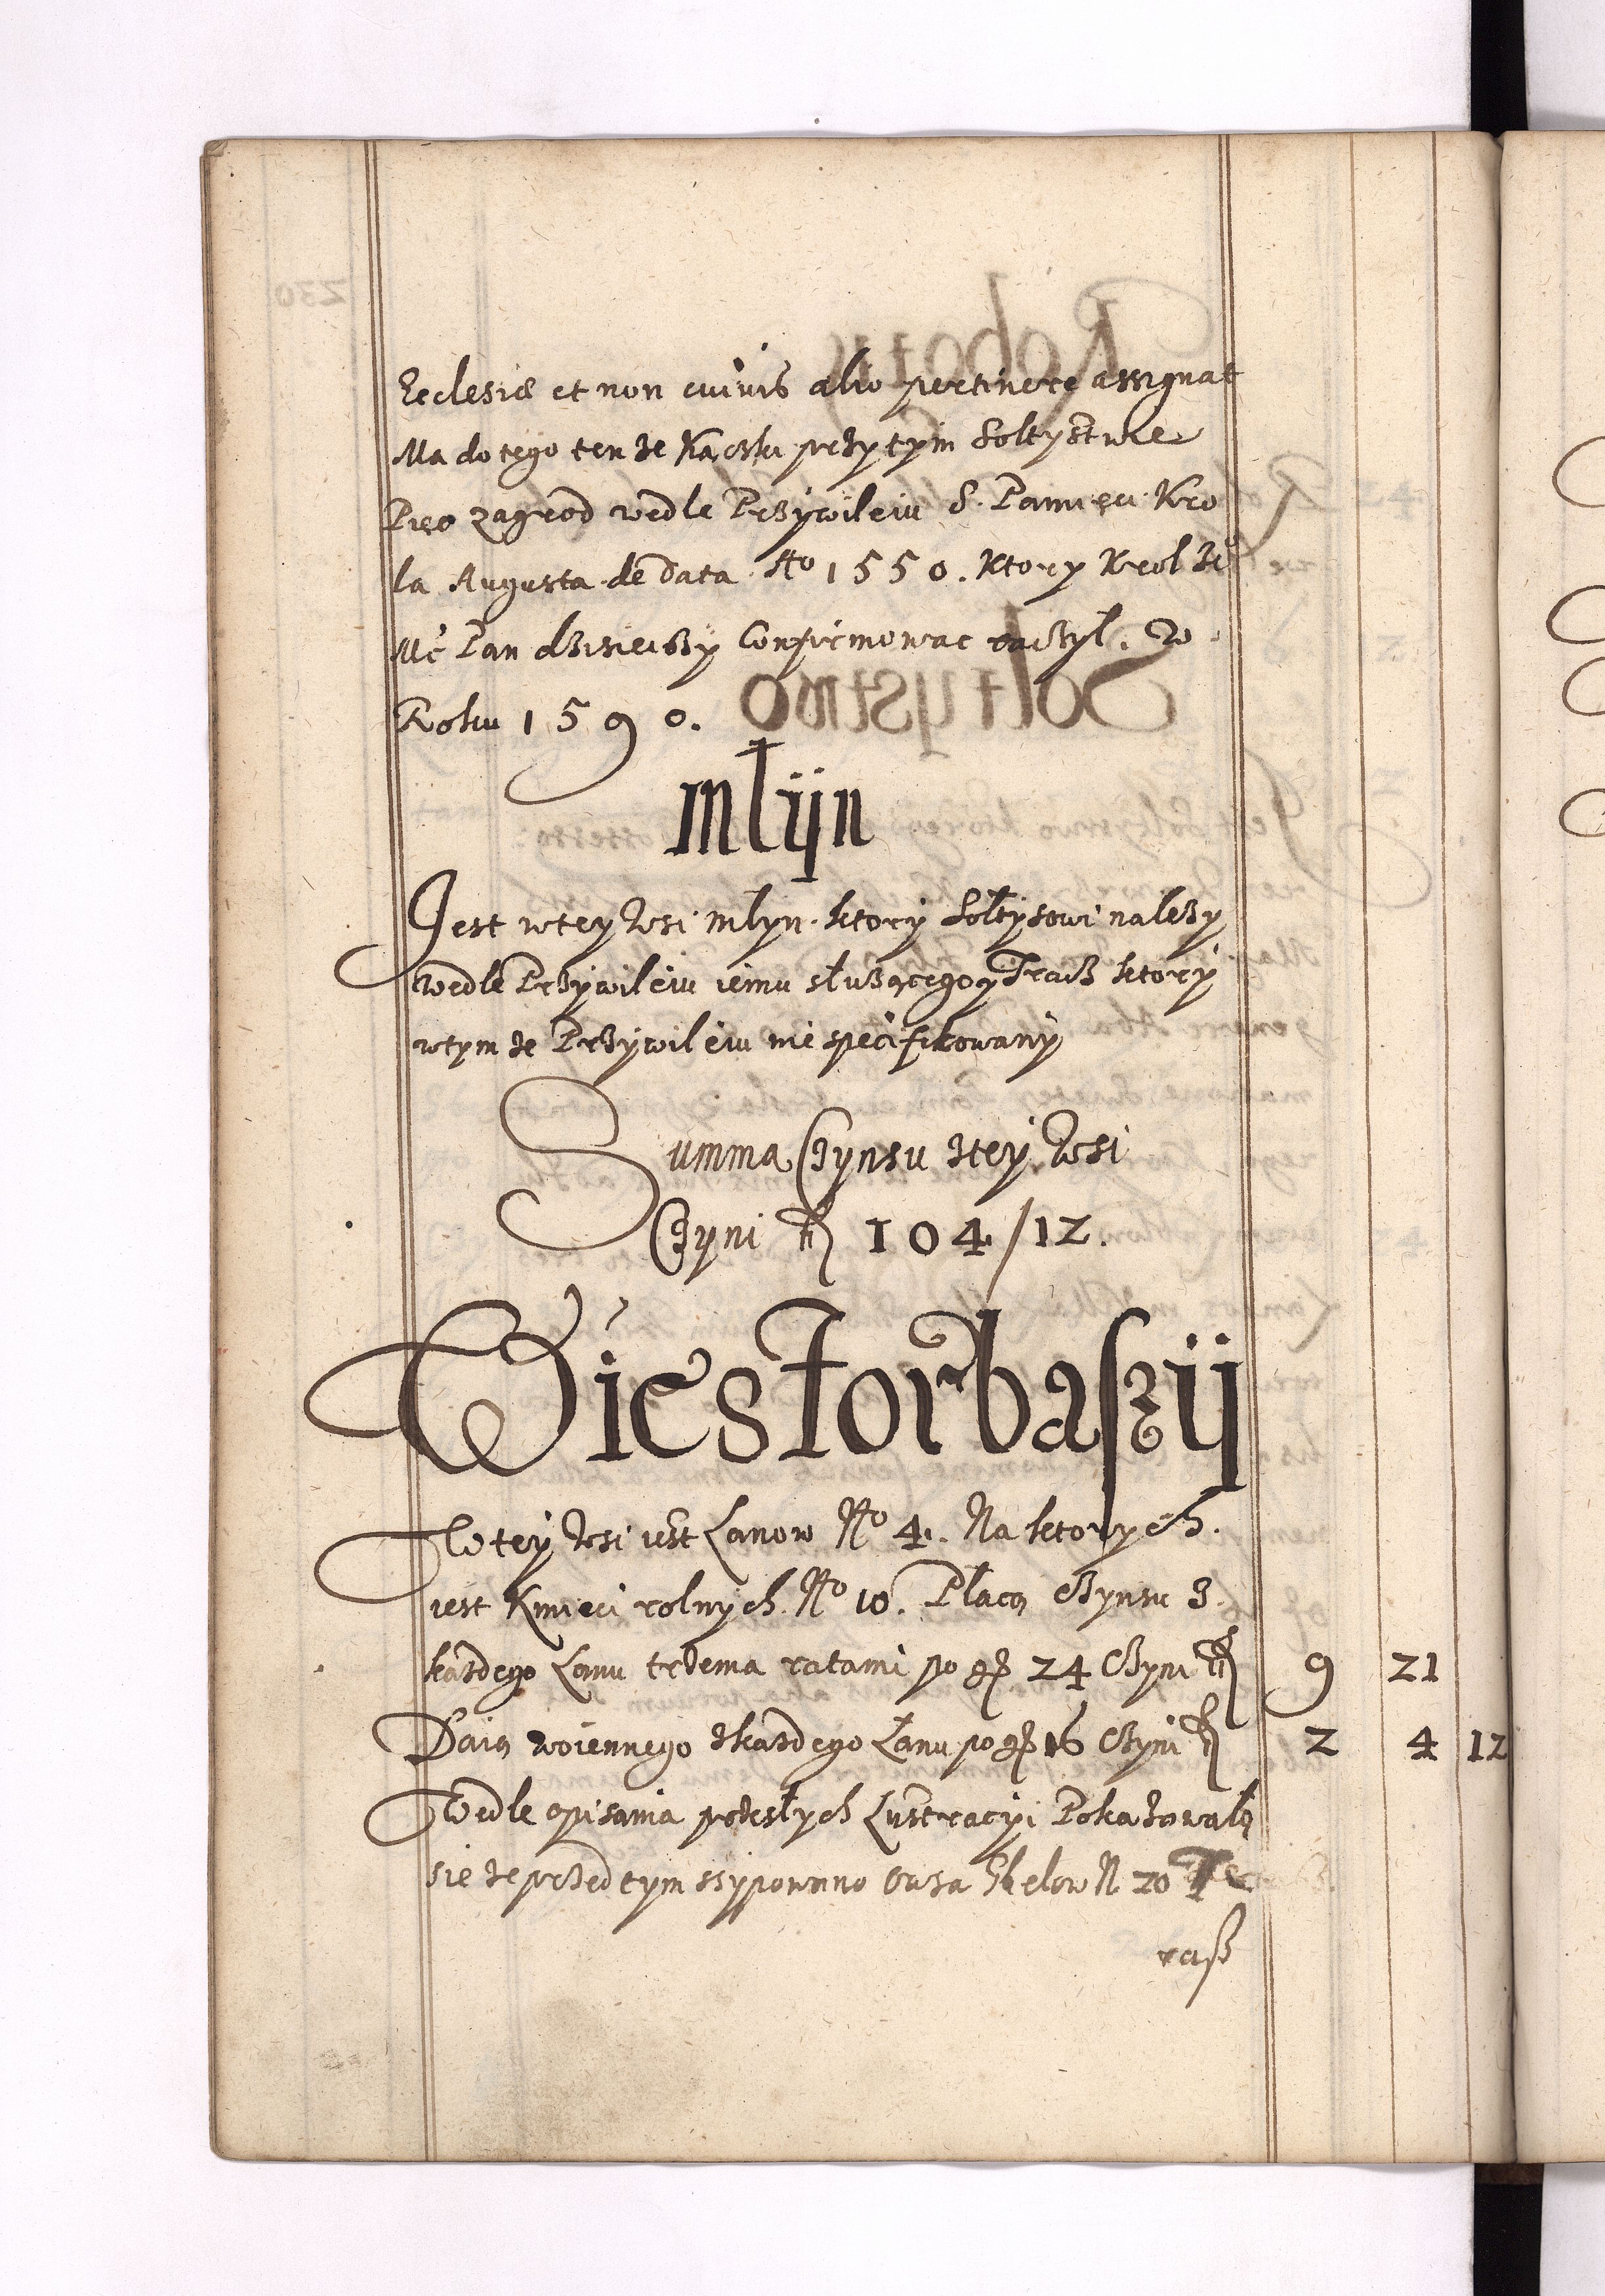 Ecclesiæ et non cuiuis alio pertinere assignat
Ma do tego tenże Kaczki przytym Soltystwie
Pięc zagrod wedle Przywileiu S. Pamięci Kro
la Augusta de data Ao 1550. Ktory Krol Je°
Mć Pan dzisieiszy Confirmowac raczył. W
Roku 1590.
Mlijn
Jest wtey Wsi Mlyn ktory Sołtysowi nalezy
wedle Przywileiu iemu służącego y Tracz ktory
wtymże Przywileiu nie specifikowany
Summa Czynsu ztey Wsi
Czyni fl 104/12.
Wies Torbaszij
W tey Wsi iest Łanow No 4. Na ktorych
iest Kmieci rolnych No 10. Płacą Czynsu z
każdego Łanu trzema ratami po gr 24 Czyni fl 9 21
Daią woiennego zkazdego Łanu po gr 16 Czyni fl 2 4 12
Wedle opisania przeszłych Lustracyi Pokazowało
sie ze przed tym ssypowano Owsa Kelow N 20 Te
rasz